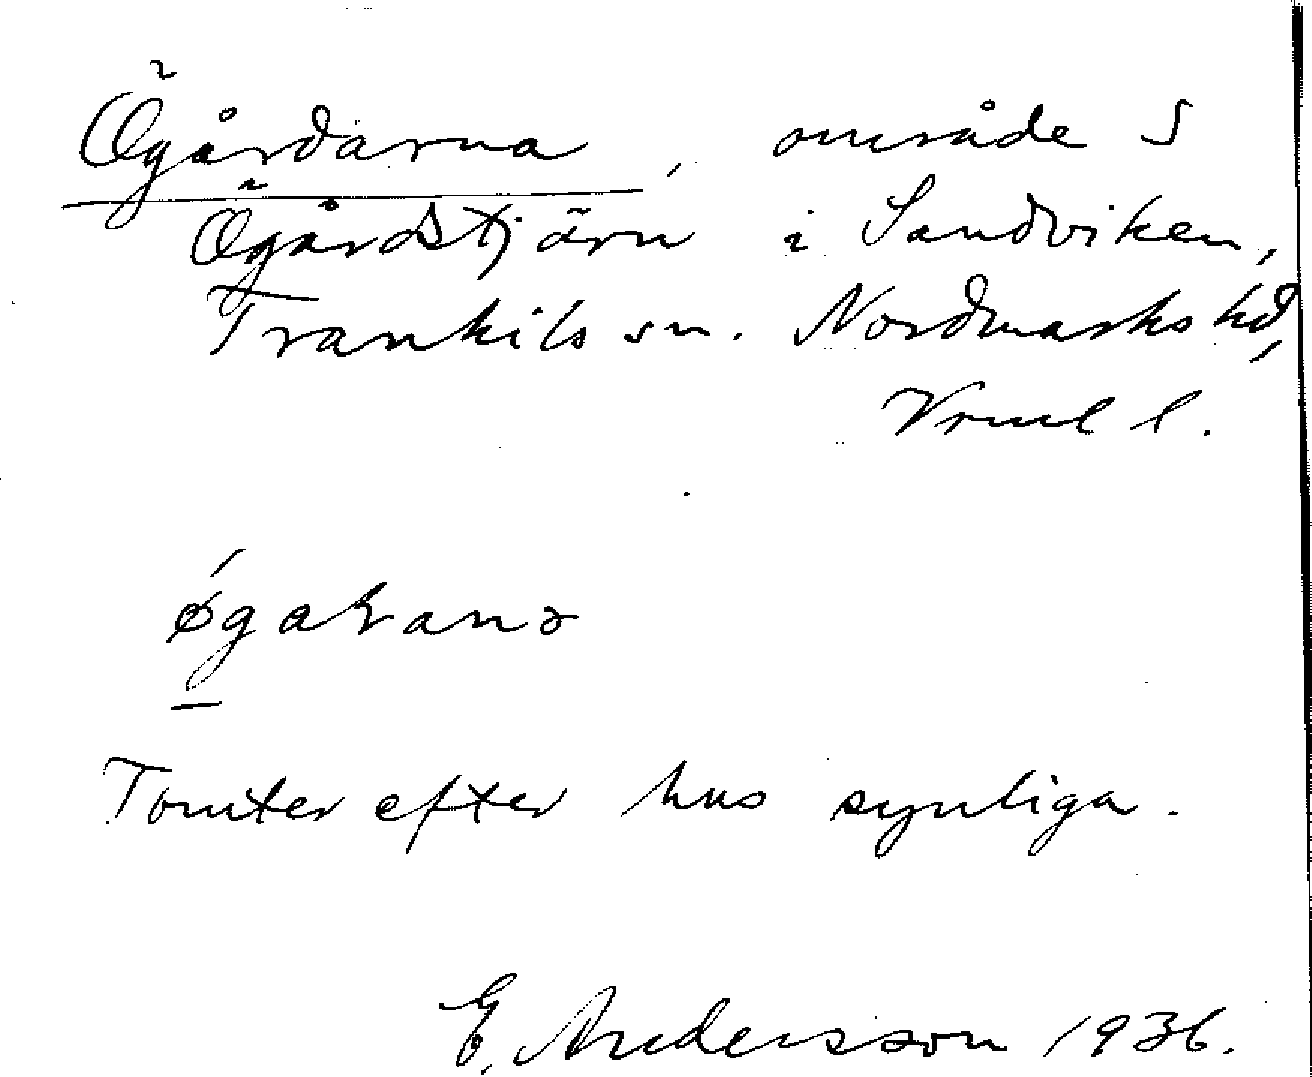 Ögårdarna, område S
Ögårdstjärn i Sandviken,
Trankils sn. Nordmarks hd,
Vrml l.
øgaɽanə
Tomter efter hus synliga.
E. Andersson 1936.